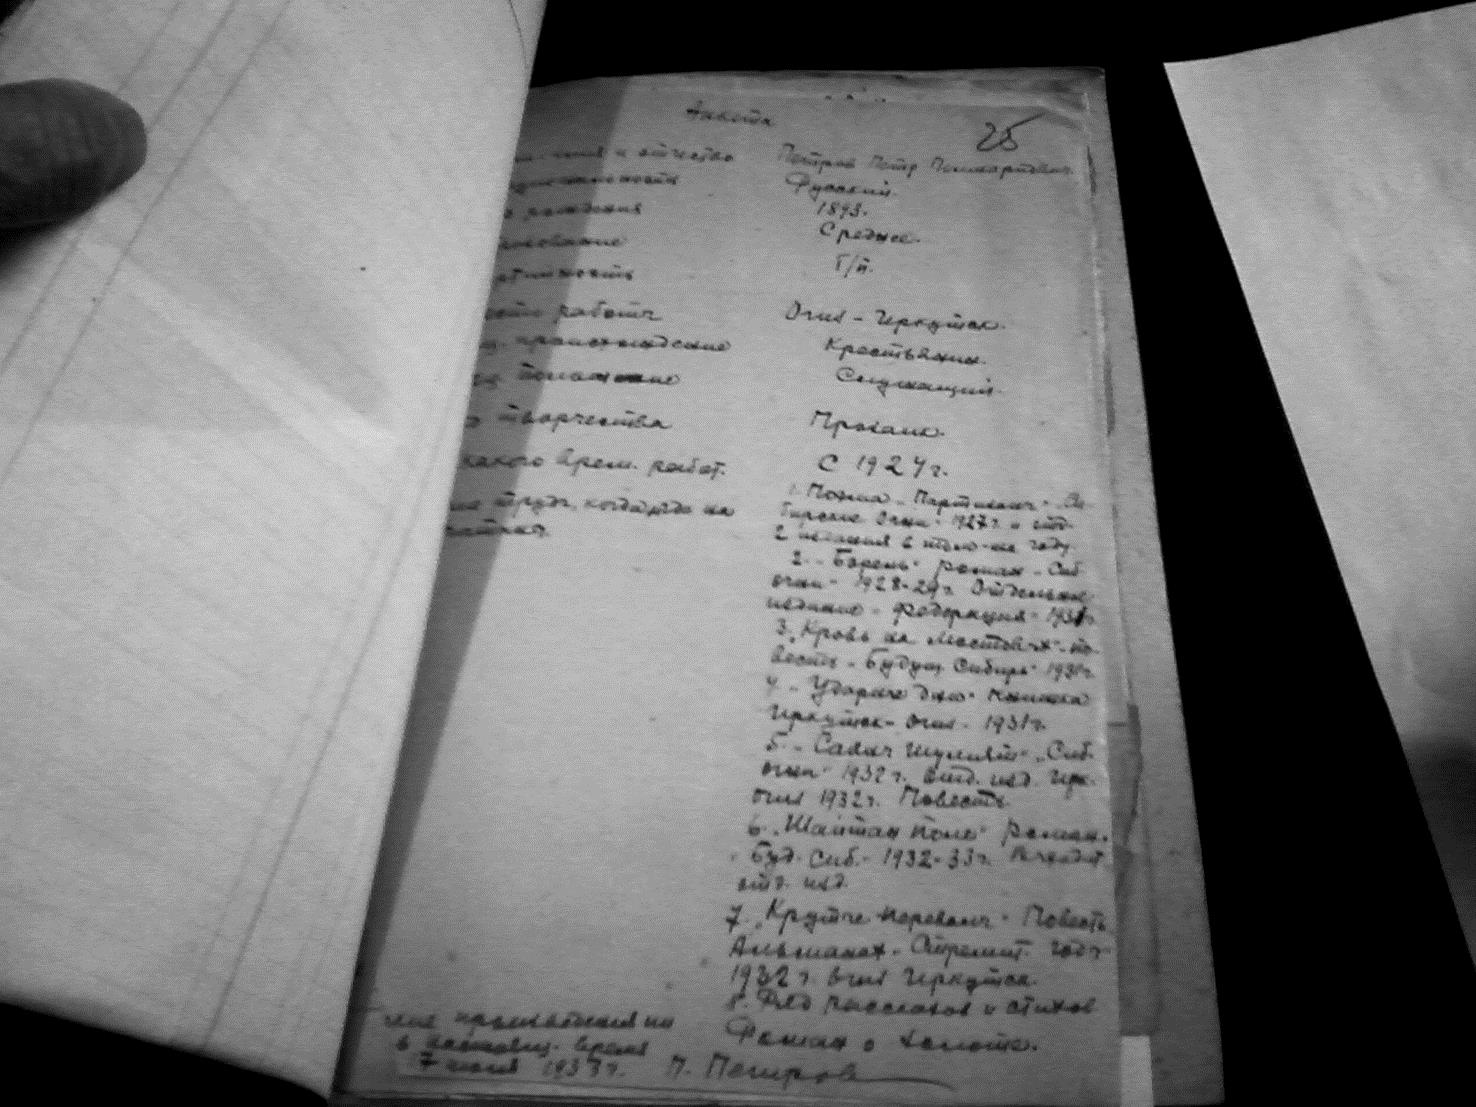 Анкета
25
имя и отчество Петров Петр Поликарпович
Русский.
рождения 1893.
Среднее.
Б/п.
работы Огиз - Иркутск.
происхождение Крестьянин.
положение Служащий.
творчества Прозаик.
какого врем. работ. С 1924 г.
труды, когда, где на 1. Поэма „Партизаны" - „Си-
бирские Огни" 1927 г. и отд.
2 издания в том-же году.
2. „Борель" роман „Сиб.
огни" 1928-29 г. Отдельное
издание „Федерация" 1931 г.
3. „Кровь на мостовых" по-
весть „Будущ. Сибирь" 1931 г.
4. „Ударное дно" книжка
Иркутск - Огиз - 1931 г.
5. „Саяны шумят" „Сиб.
огни" 1932 г. Отд. изд. Ирк.
Огиз 1932 г. Повесть.
6. „Шайтан поле" роман.
„Буд. Сиб." 1932-33 г. Выходит
отд. изд.
7. „Крутые перевалы" Повесть
Альманах „Стремит. годы"
1932 г. Огиз Иркутск.
8. Ряд рассказов и стихов
произведения Роман о золоте.
в настоящ. время
7 июня 1933 г. П. Петров